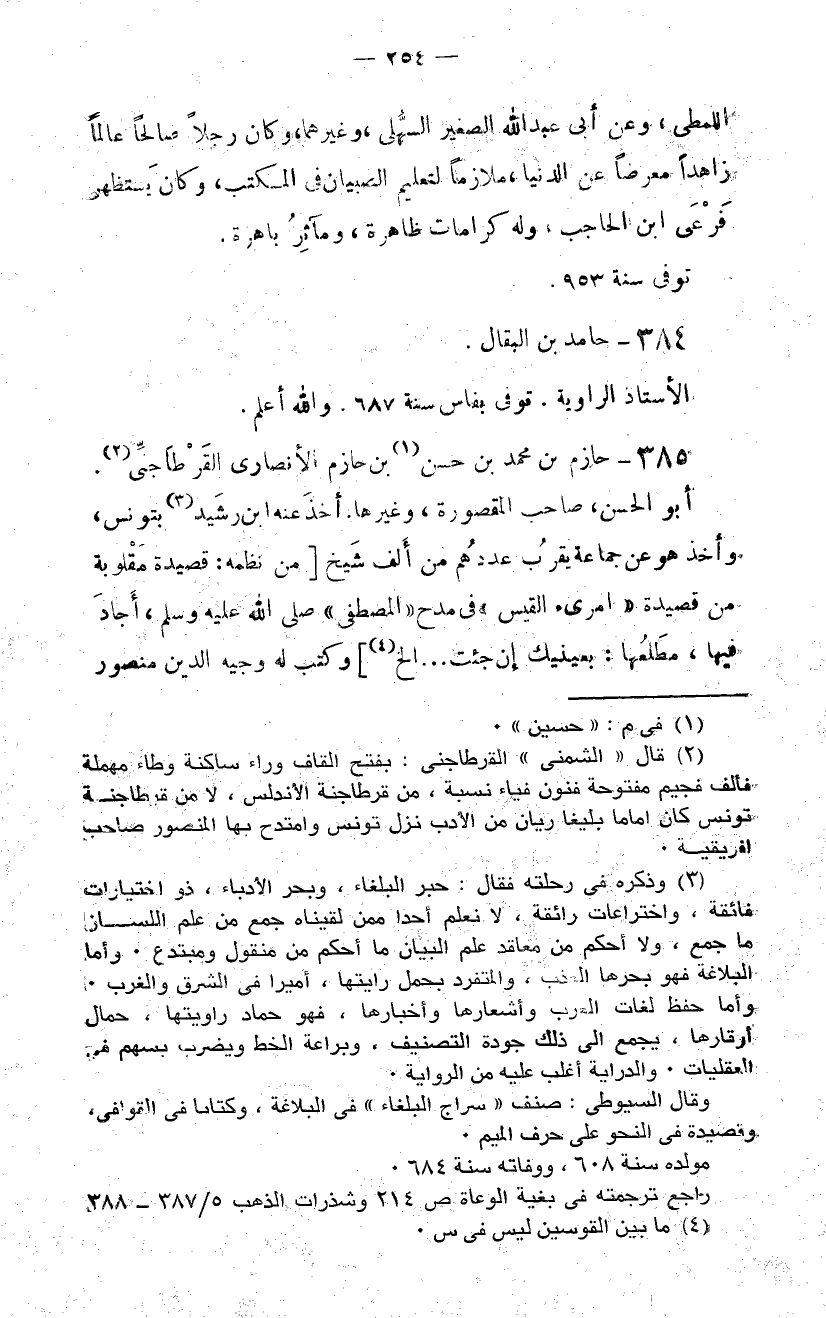 — ٢٥٤ —
اللمطى ، وعن أبى عبدالله الصغير السهُّلى ، وغيرهما، وكان رجلاً صالحًا عالمًا
زاهداً معرضاً عن الدنيا ، ملازمًا لتعليم الصبيان فى المكتب، وكان يَستظهر
فَرْعَى ابن الحاجب ، وله كرامات ظاهرة ، ومآثِرُ باهرة .
توفى سنة ٩٥٣ .
٣٨٤ – حامد بن البقال .
الأستاذ الراوية . توفى بفاس سنة ٦٨٧ . والله أعلم .
٣٨٥ – حازم بن محمد بن حسن (١) بن حازم الأنصارى القَرْطَاجنِّى (٢) .
أبو الحسن، صاحب المقصورة ، وغيرها. أخذَ عنه ابن رشَيد (٣) بتونس،
وأخذ هو عن جماعة يقرُب عددُهم من أَلف شَيخ [ من نظمه: قصيدة مَقْلوبة
من قصيدة « امرىء القيس » فى مدح «المصطفى» صلى الله عليه وسلم ، أجادَ
فيها ، مطَلعُها : بعينيك إن جئت ... الخ (٤) ] وكتب له وجيه الدين منصور
(١) فى م : « حسين » ٠
(٢) قال « الشمنى » القرطاجنى : بفتح القاف وراء ساكنة وطاء مهملة
فألف فجيم مفتوحة فنون فياء نسبة ، من قرطاجنة الأندلس ، لا من قرطاجنة
تونس كان اماما بليغا ريان من الأدب نزل تونس وامتدح بها المنصور صاحب
افريقية ٠
(٣) وذكره فى رحلته فقال : حبر البلغاء ، وبحر الأدباء ، ذو اختيارات
فائقة ، واختراعات رائقة ، لا نعلم أحدا ممن لقيناه جمع من علم اللسان
ما جمع ، ولا أحكم من معاقد علم البيان ما أحكم من منقول ومبتدع ٠ وأما
البلاغة فهو بحرها العذب ، والمتفرد بحمل رايتها ، أميرا فى الشرق والغرب ٠
وأما حفظ لغات العرب وأشعارها وأخبارها ، فهو حماد راويتها ، حمال
أوقارها ، يجمع الى ذلك جودة التصنيف ، وبراعة الخط ويضرب بسهم فى
العقليات ٠ والدراية أغلب عليه من الرواية ٠
وقال السيوطى : صنف « سراج البلغاء » فى البلاغة ، وكتابا فى القوافى،
وقصيدة فى النحو على حرف الميم ٠
مولده سنة ٦٠٨ ، ووفاته سنة ٦٨٤ ٠
راجع ترجمته فى بغية الوعاة ص ٢١٤ وشذرات الذهب ٣٨٧/٥ – ٣٨٨
(٤) ما بين القوسين ليس فى س ٠